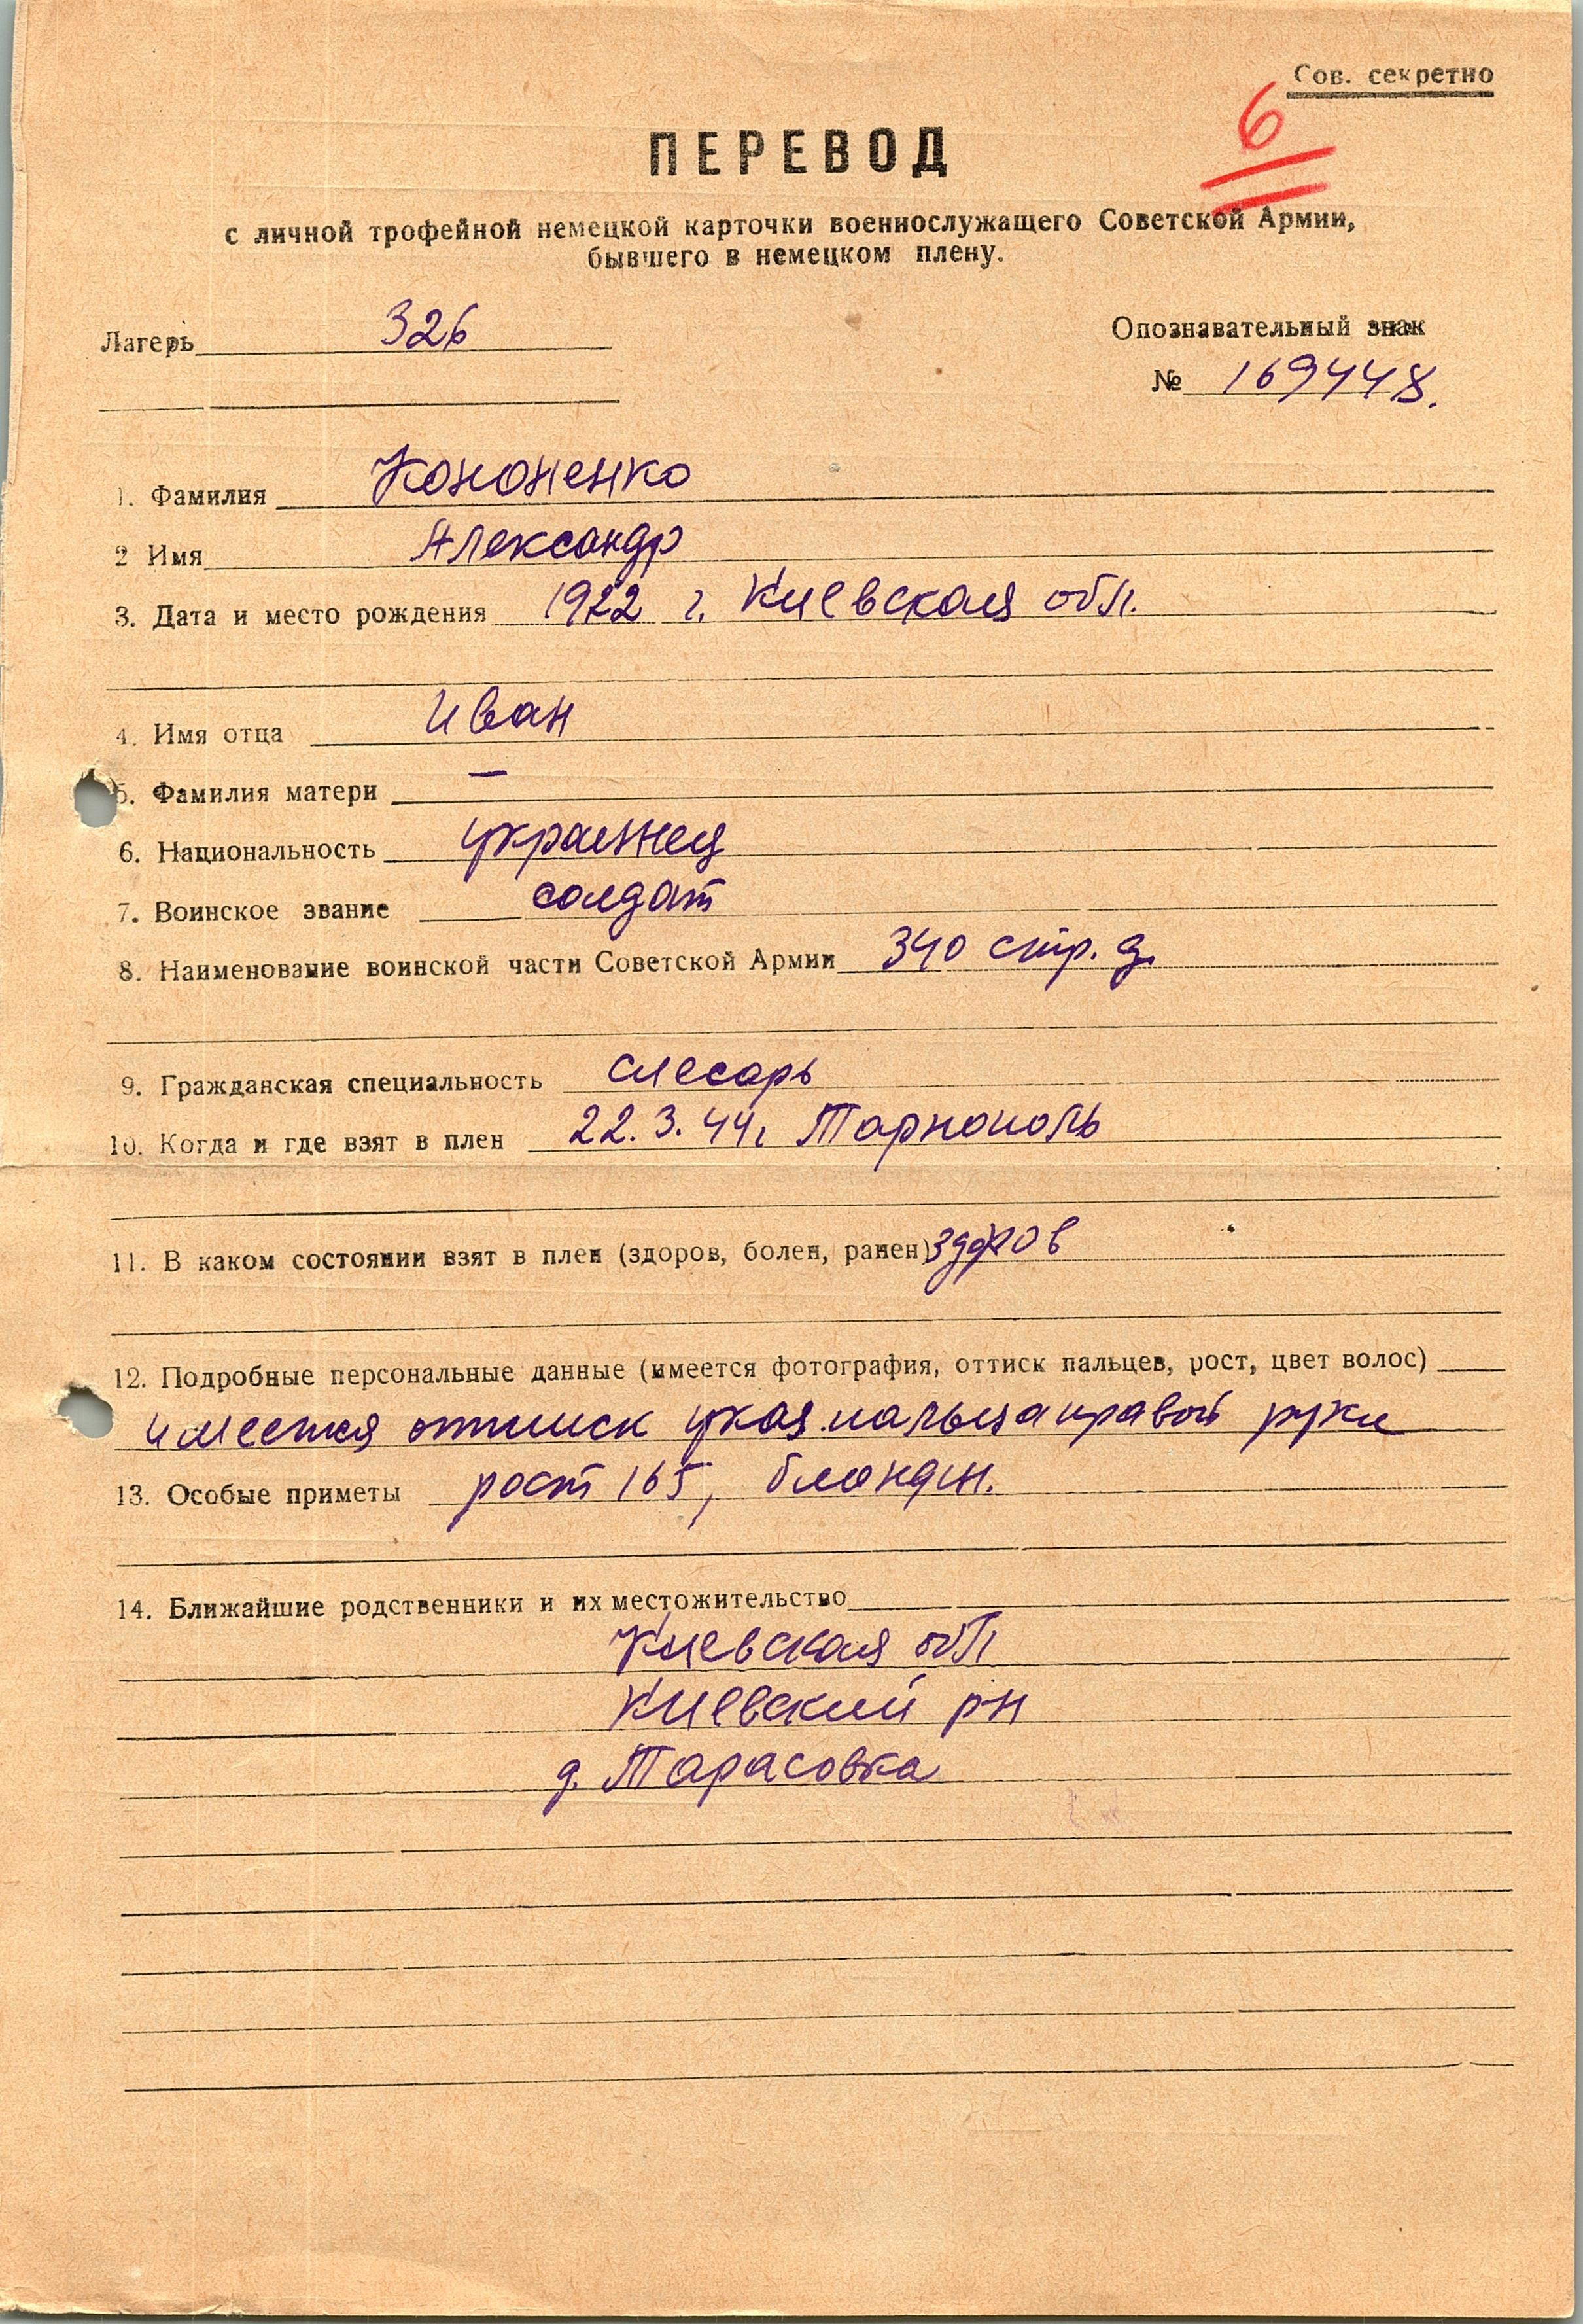 Сов. секретно
6
ПЕРЕВОД
с личной трофейной немецкой карточки военнослужащего Советской Армии,
бывшего в немецком плену.
Лагерь 326
Опознавательный знак
№ 169448.
1. Фамилия Кононенко
2 Имя Александр
3. Дата и место рождения 1922 г. Киевская обл.
4. Имя отца Иван
5. Фамилия матери —
6. Национальность украинец
7. Воинское звание солдат
8. Наименование воинской части Советской Армии 340 стр. д.
9. Гражданская специальность слесарь
10. Когда и где взят в плен 22.3.44г Тарнополь
11. В каком состоянии взят в плен (здоров, болен, ранен) здоров
12. Подробные персональные данные (имеется фотография, оттиск пальцев, рост, цвет волос)
имеется оттиск указ. пальца правой руки
13. Особые приметы рост 165, блондин.
14. Ближайшие родственники и их местожительство
Киевская обл
Киевский рн
д. Тарасовка